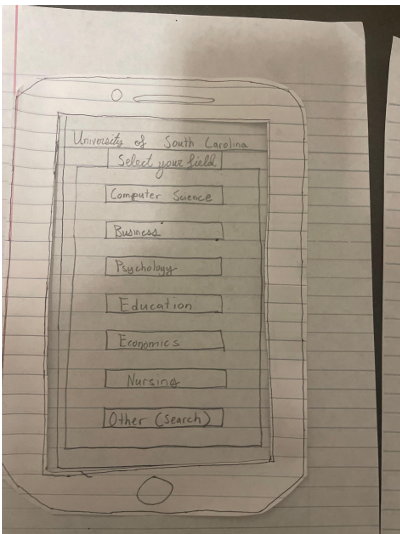 University of South Carolina
Select your field
Computer Science
Business
Psychology
Education
Economics
Nursing
Other (Search)